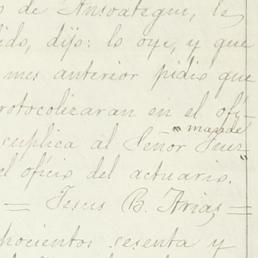 s de Ansoategui, le
ido, dijo: lo oye, y que
mes anterior pidio que
rotocolizaran en el ofi-
"mande
suplica al Señor Juez
el oficio del actuario.
= Jesus B. Arias, =
chocientos sesenta y